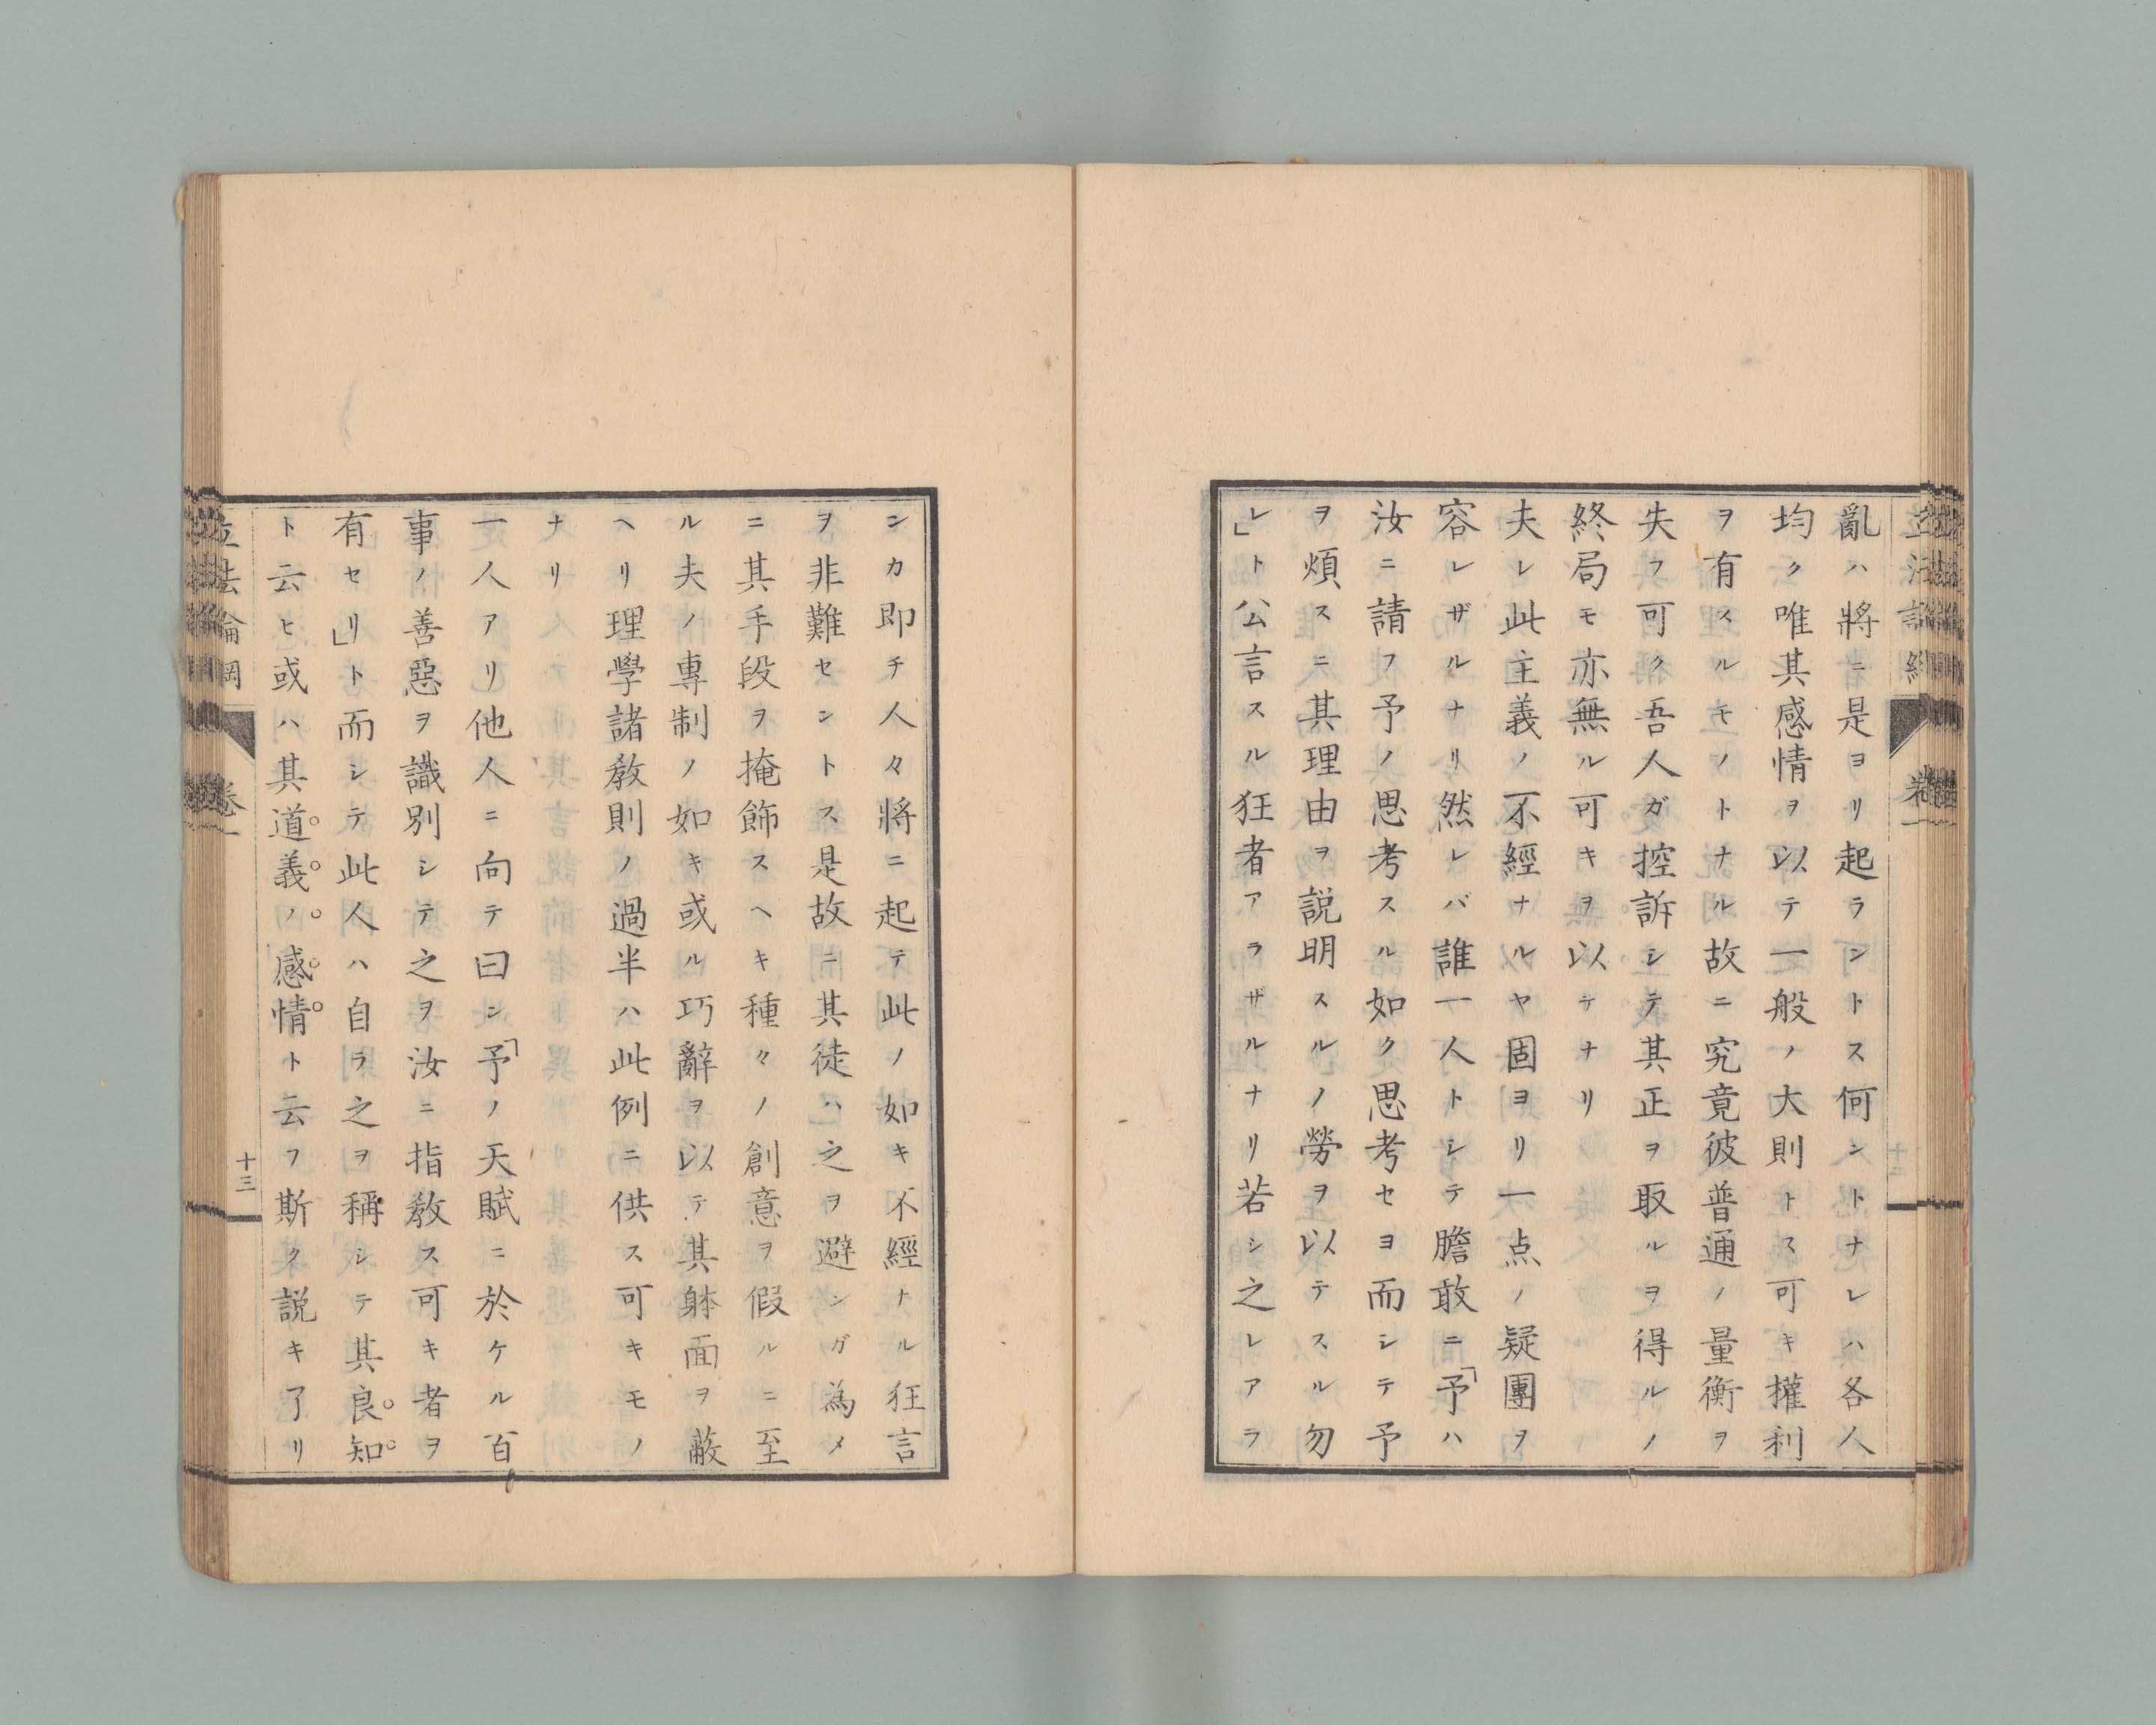 亂ハ將ニ是ヨリ起ラントス何ントナレハ各人
均ク唯其感情ヲ以テ一般ノ大則トス可キ權利
ヲ有スルモノトナル故ニ究竟彼普通ノ量衡ヲ
失フ可ク吾人ガ控訴シテ其正ヲ取ルヲ得ルノ
終局モ亦無ル可キヲ以テナリ
夫レ此主義ノ不經ナルヤ固ヨリ一点ノ疑團ヲ
容レザルナリ然レバ誰一人トシテ膽敢ニ「予ハ
汝ニ請フ予ノ思考スル如ク思考セヨ而シテ予
ヲ煩スニ其理由ヲ説明スルノ勞ヲ以テスル勿
レ」ト公言スル狂者アラザルナリ若シ之レアラ
ンカ即チ人々將ニ起テ此ノ如キ不經ナル狂言
ヲ非難セントス是故ニ其徒ハ之ヲ避ンガ為メ
ニ其手段ヲ掩飾スヘキ種々ノ創意ヲ假ルニ至
ル夫ノ專制ノ如キ或ル巧辭ヲ以テ其躰面ヲ蔽
ヘリ理學諸教則ノ過半ハ此例ニ供ス可キモノ
ナリ
一人アリ他人ニ向テ曰ン「予ノ天賦ニ於ケル百
事ノ善惡ヲ識別シテ之ヲ汝ニ指教ス可キ者ヲ
有セリ」ト而シテ此人ハ自ラ之ヲ稱シテ其良知
ト云ヒ或ハ其道義ノ感情ト云フ斯ク説キ了リ
立法論綱 卷一 十三